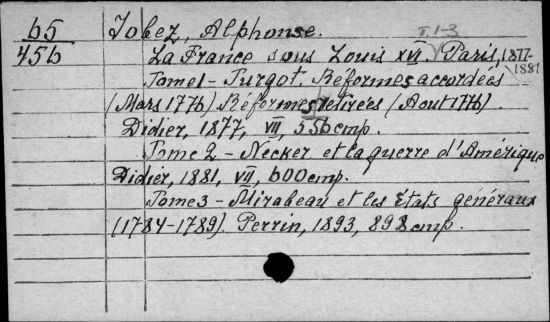 65 Jobez, Alphonse.
T. 1-3
456 La France sous Louis XVI. Paris, 1877-
1881
Tome 1 - Turgot. Réformes accordées
(Mars 1776) Réformes retirées (Aout 1776).
Didier, 1877, VII, 556 cmp.
Tome 2 - Necker et la guerre d'Amérique
Didier, 1881, VII, 600 cmp.
Tome 3 - Mirabeau et les États généraux
(1784-1789). Perrin, 1893, 898 cmp.